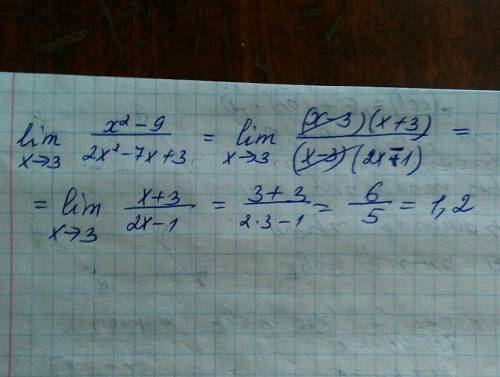 lim x→3 (x² − 9)/(2x² − 7x + 3) = lim x→3 ((x−3)(x+3))/((x−3)(2x−1)) =
= lim x→3 (x+3)/(2x−1) = (3+3)/(2·3−1) = 6/5 = 1,2